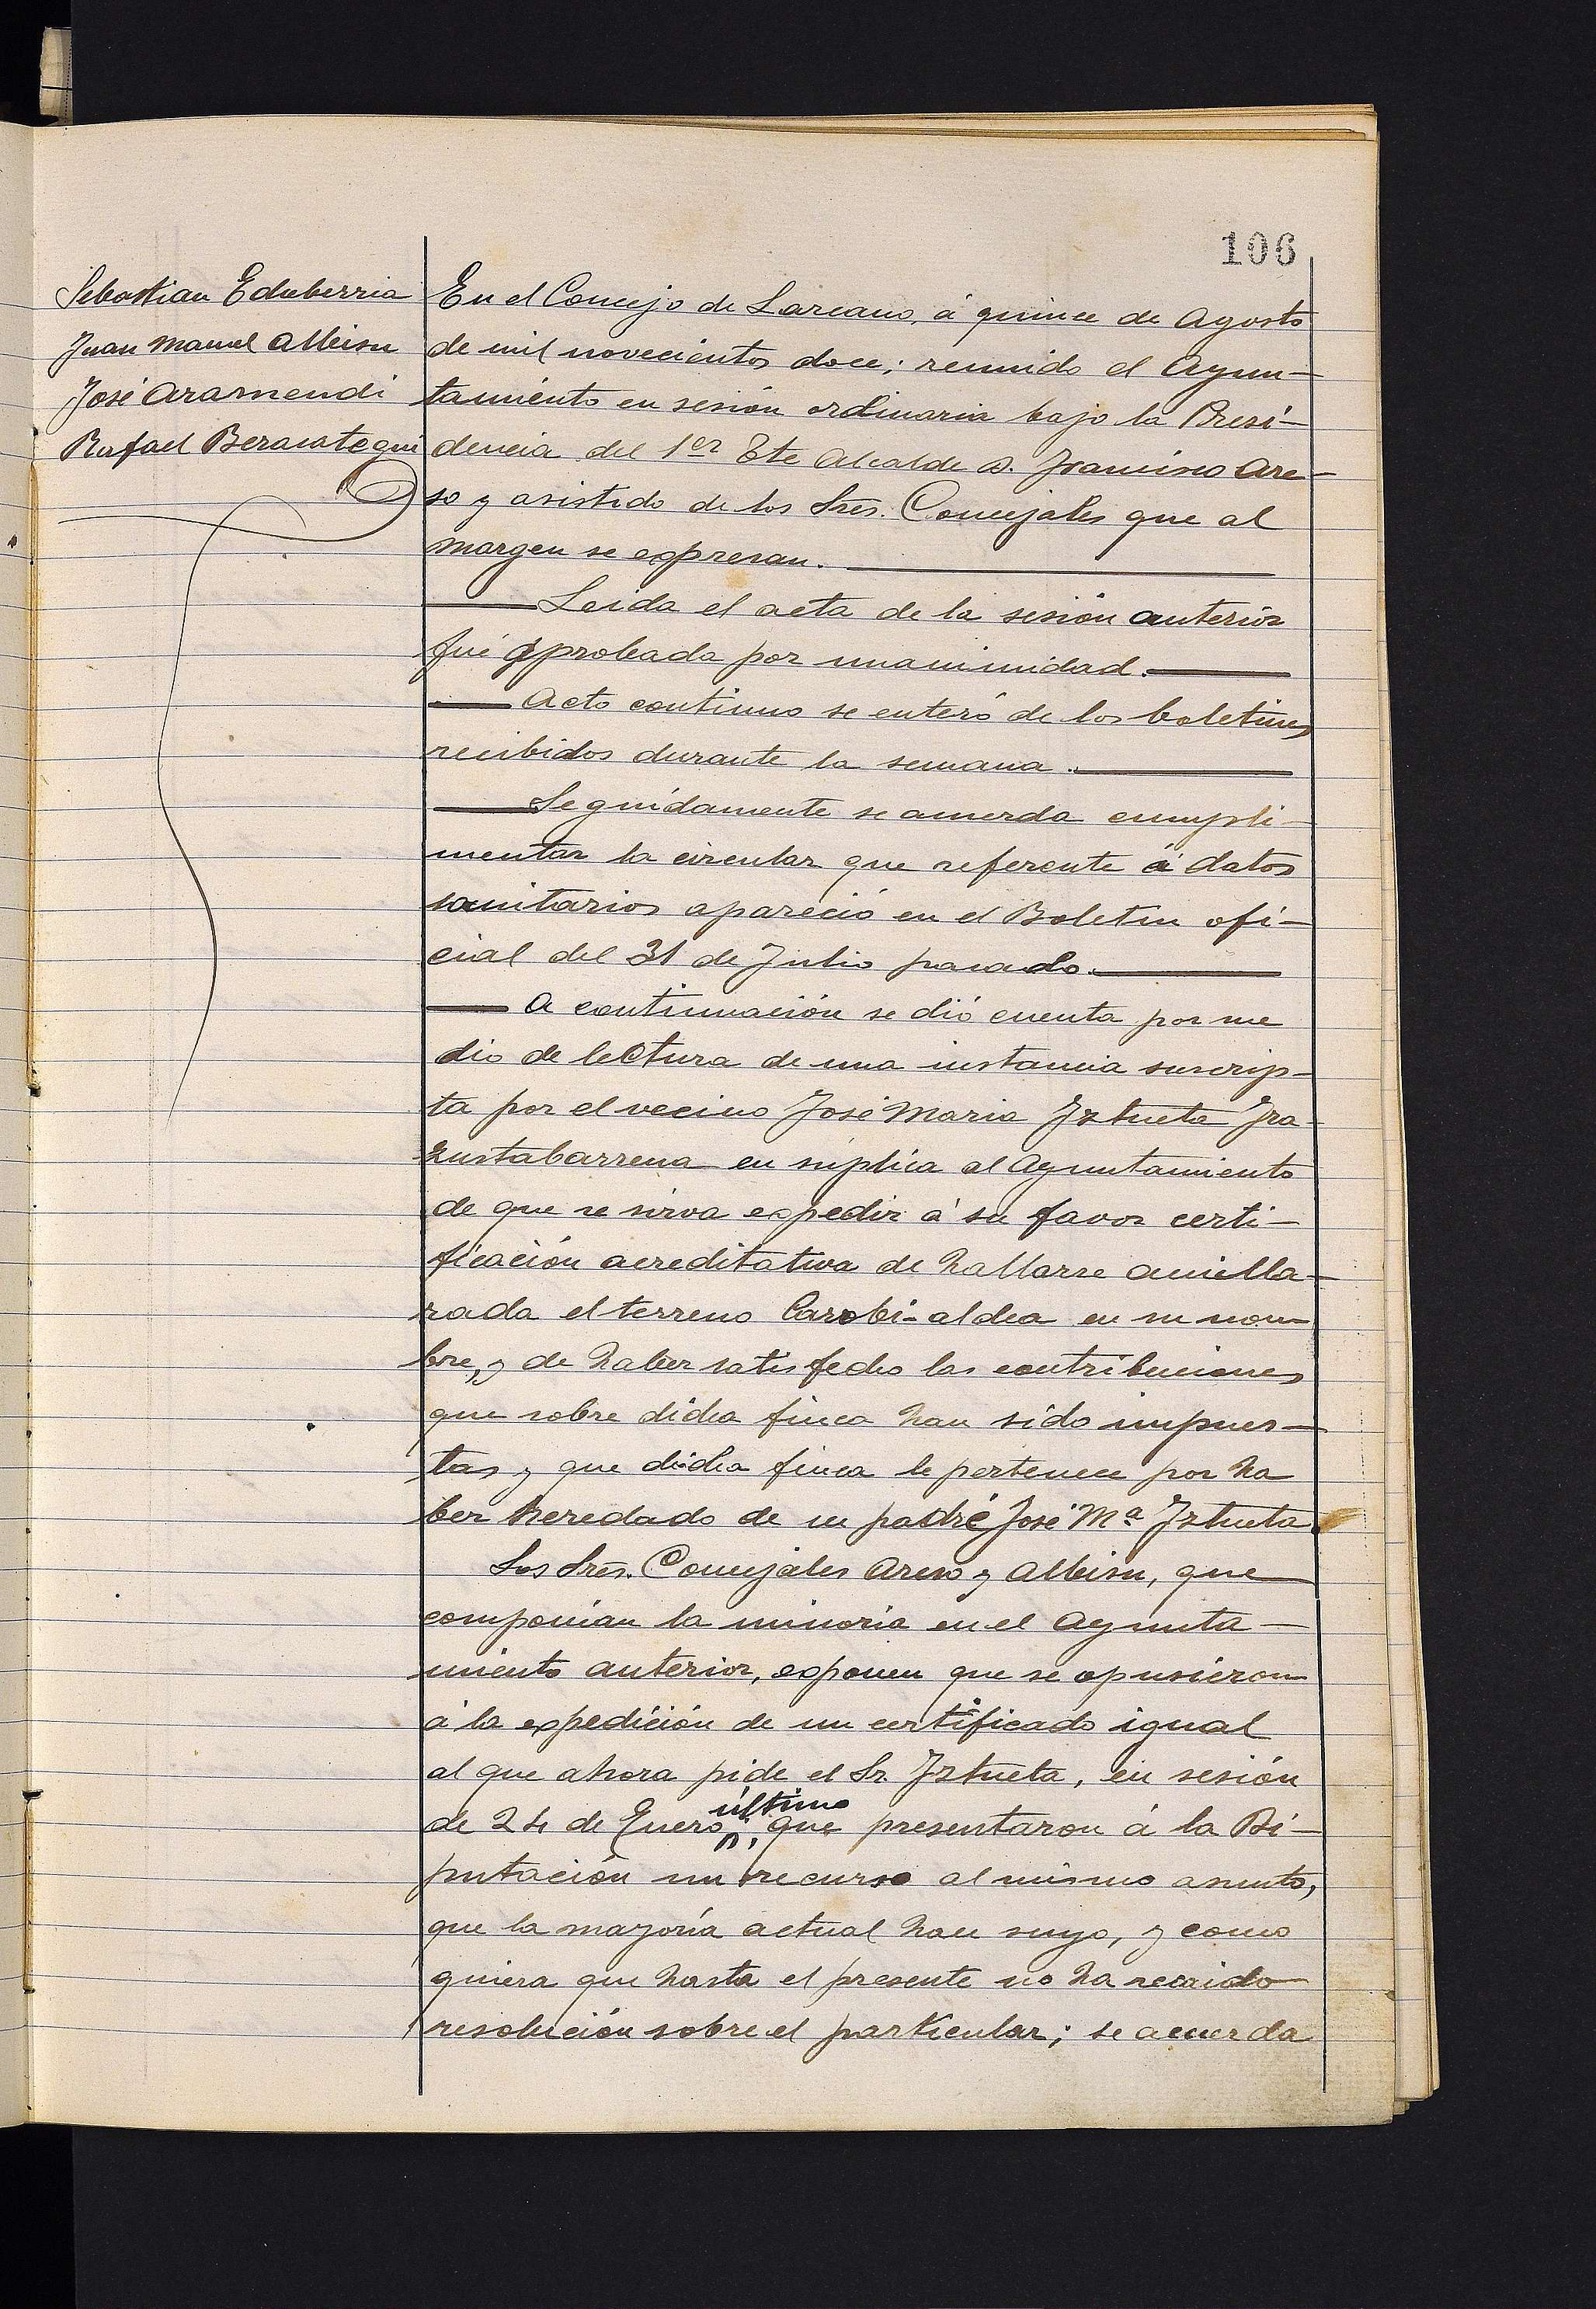 106
Sebastian Echeberria
Juan Manuel Albisu
José Aramendi
Rafael Berasategui
En el Concejo de Lazcano, á quince de Agosto
de mil novecientos doce; reunido el Ayun-
tamiento en sesión ordinaria bajo la Presi-
dencia del 1er Tte Alcalde D. Francisco Are-
so y asistido de los Sres. Concejales que al
margen se expresan.
Leida el acta de la sesión anterior
fué aprobada por unanimidad.
Acto continuo se enteró de los boletines
recibidos durante la semana.
Seguidamente se acuerda cumpli-
mentar la circular que referente á datos
sanitarios apareció en el Boletin ofi-
cial del 31 de Julio pasado.
A continuación se dió cuenta por me
dio de lectura de una instancia suscrip-
ta por el vecino José Maria Iztueta Ira-
zustabarrena en súplica al Ayuntamiento
de que se sirva expedir á su favor certi-
ficación acreditativa de hallarse amilla-
rada el terreno Carobi-aldea en su nom
bre, y de haber satisfecho las contribuciones
que sobre dicha finca han sido impues-
tas y que dicha finca le pertenece por ha
ber heredado de su padre José Mª Iztueta.
Los Sres. Concejales Areso y Albisu, que
componian la minoria en el Ayunta-
miento anterior, exponen que se opusieron
á la expedición de un certificado igual
al que ahora pide el Sr. Iztueta, en sesión
de 24 de Enero último, que presentaron á la Di-
putación un recurso al mismo asunto,
que la mayoría actual hace suyo, y como
quiera que hasta el presente no ha recaido
resolución sobre el particular; se acuerda